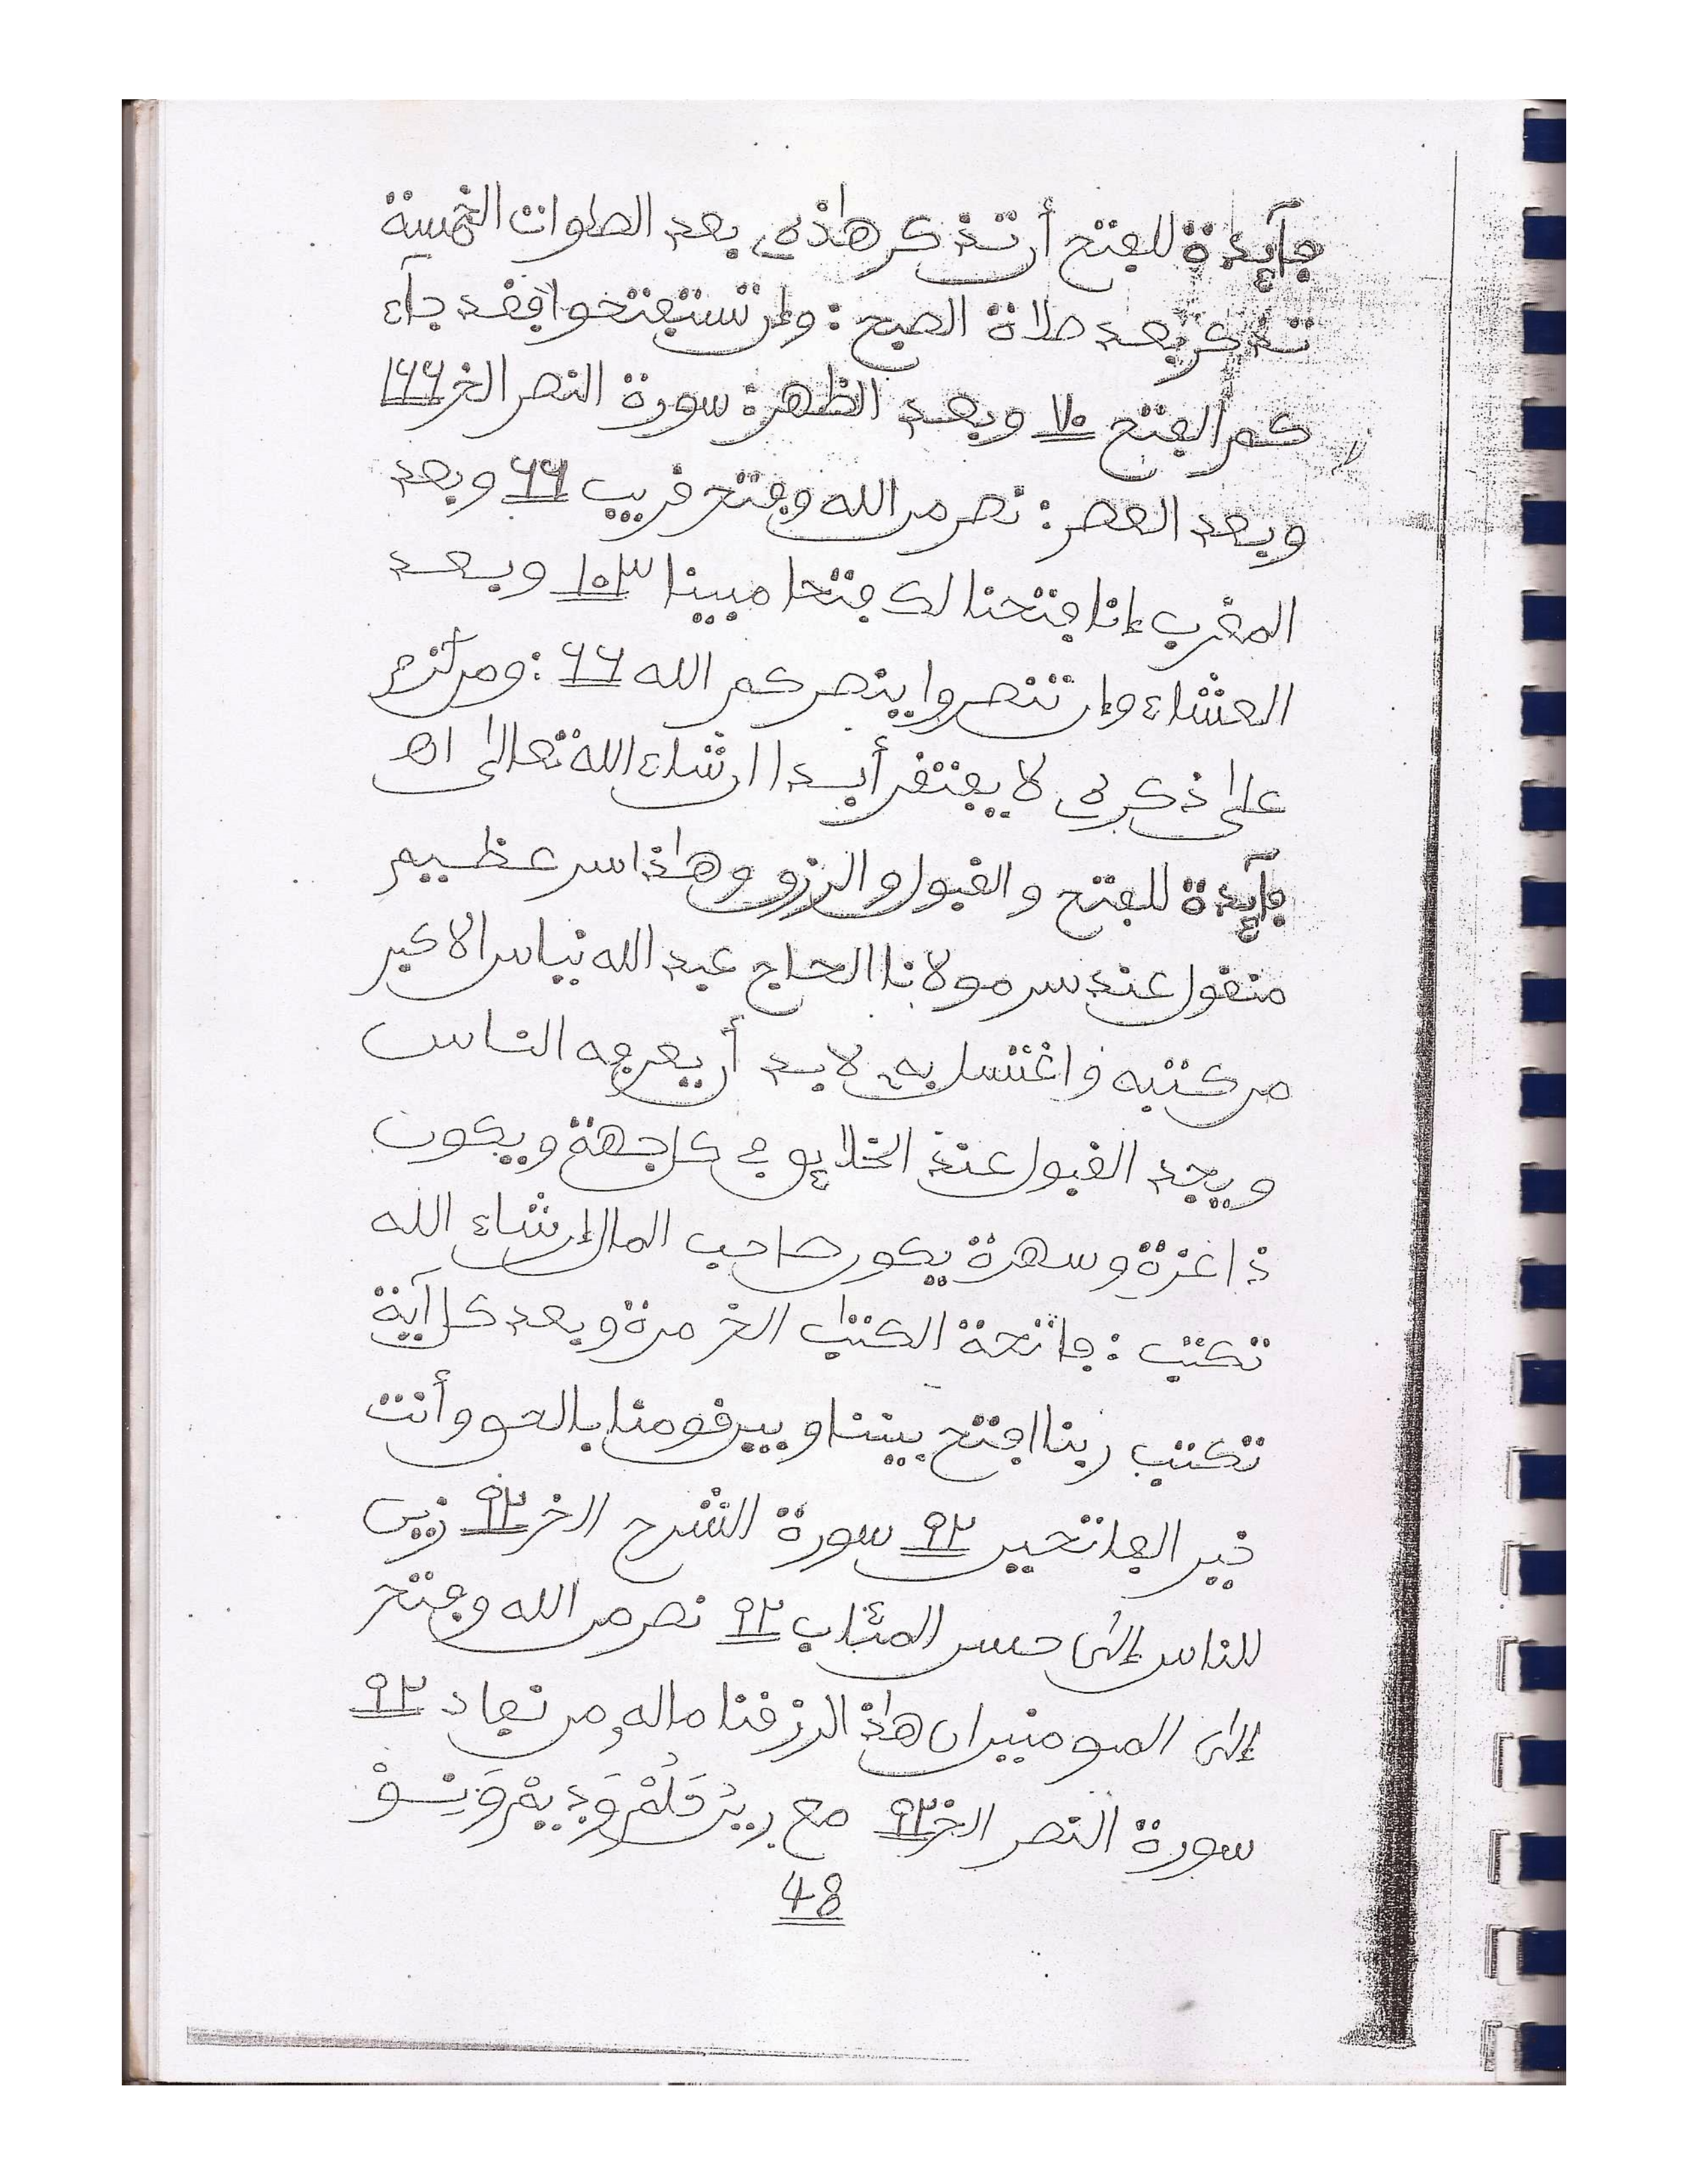 فآيدة للفتح أن تذكر هاذه بعد الصلوات الخمسة
تذكر بعد صلاة الصبح : وإن تستفتحوا فقد جآء
كم الفتح ٧٠ وبعد الظهر : سورة النصر الخ ١٦٦
وبعد العصر : نصر من الله وفتح قريب ٦٦ وبعد
المغرب إنا فتحنا لك فتحا مبينا ١٠٣ وبعد
العشاء وإن تنصروا ينصركم الله ٦٦ : ومن
على ذكره لا يفتقر أبدا ان شاء الله تعالى اهـ
فآيدة للفتح والقبول والرزق وهاذا سر عظيم
منقول عند سر مولانا الحاج عبد الله نياس الاكبر
من كتبه واغتسل به لابد أن يعرفه الناس
ويجد القبول عند الخلايق في كل جهة ويكون
ذا عزة وسهرة يكون صاحب المال إن شاء الله
تكتب : فاتحة الكتاب الخ مرة وبعد كل آية
تكتب ربنا افتح بيننا وبين قومنا بالحق وأنت
خير الفاتحين ٩٢ سورة الشرح الخ ٩٢ زين
للناس إلى حسن المئاب ٩٢ نصر من الله وفتح
إلى المومنين ان هاذا لرزقنا ماله من نفاد ٩٢
سورة النصر الخ ٩٢ مع
48